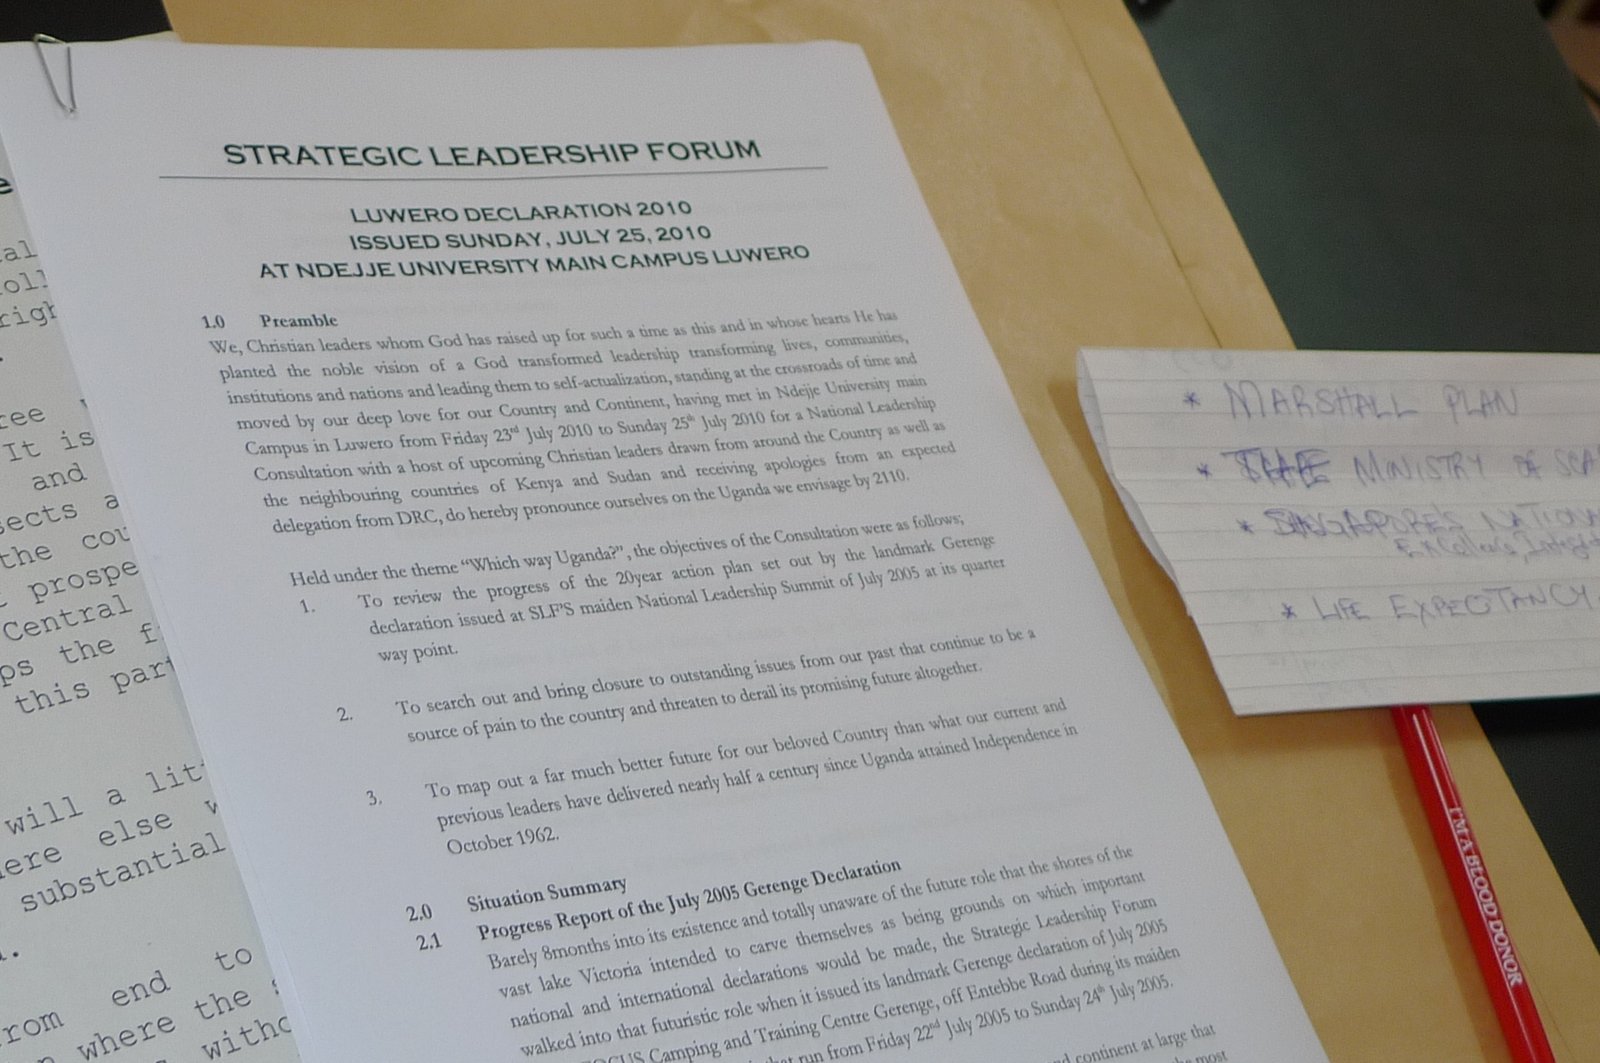 STRATEGIC LEADERSHIP FORUM
LUWERO DECLARATION 2010
ISSUED SUNDAY, JULY 25, 2010
AT NDEJJE UNIVERSITY MAIN CAMPUS LUWERO
1.0 Preamble
We, Christian leaders whom God has raised up for such a time as this and in whose hearts He has
planted the noble vision of a God transformed leadership transforming lives, communities,
institutions and nations and leading them to self-actualization, standing at the crossroads of time and
moved by our deep love for our Country and Continent, having met in Ndejje University main
Campus in Luwero from Friday 23rd July 2010 to Sunday 25th July 2010 for a National Leadership
Consultation with a host of upcoming Christian leaders drawn from around the Country as well as
the neighbouring countries of Kenya and Sudan and receiving apologies from an expected
delegation from DRC, do hereby pronounce ourselves on the Uganda we envisage by 2110.
Held under the theme "Which way Uganda?", the objectives of the Consultation were as follows;
1. To review the progress of the 20year action plan set out by the landmark Gerenge
declaration issued at SLF'S maiden National Leadership Summit of July 2005 at its quarter
way point.
2. To search out and bring closure to outstanding issues from our past that continue to be a
source of pain to the country and threaten to derail its promising future altogether.
3. To map out a far much better future for our beloved Country than what our current and
previous leaders have delivered nearly half a century since Uganda attained Independence in
October 1962.
2.0 Situation Summary
2.1 Progress Report of the July 2005 Gerenge Declaration
Barely 8months into its existence and totally unaware of the future role that the shores of the
vast lake Victoria intended to carve themselves as being grounds on which important
national and international declarations would be made, the Strategic Leadership Forum
walked into that futuristic role when it issued its landmark Gerenge declaration of July 2005
Camping and Training Centre Gerenge, off Entebbe Road during its maiden
that run from Friday 22nd July 2005 to Sunday 24th July 2005.
continent at large that
most
It is
and
the
prospe
Central
ps the f
this par
will a lit
ere else w
substantial
end to
where the
witho
* MARSHALL PLAN
* MINISTRY OF
* SINGAPORE'S
* LIFE EXPECTANCY
I'M A BLOOD DONOR